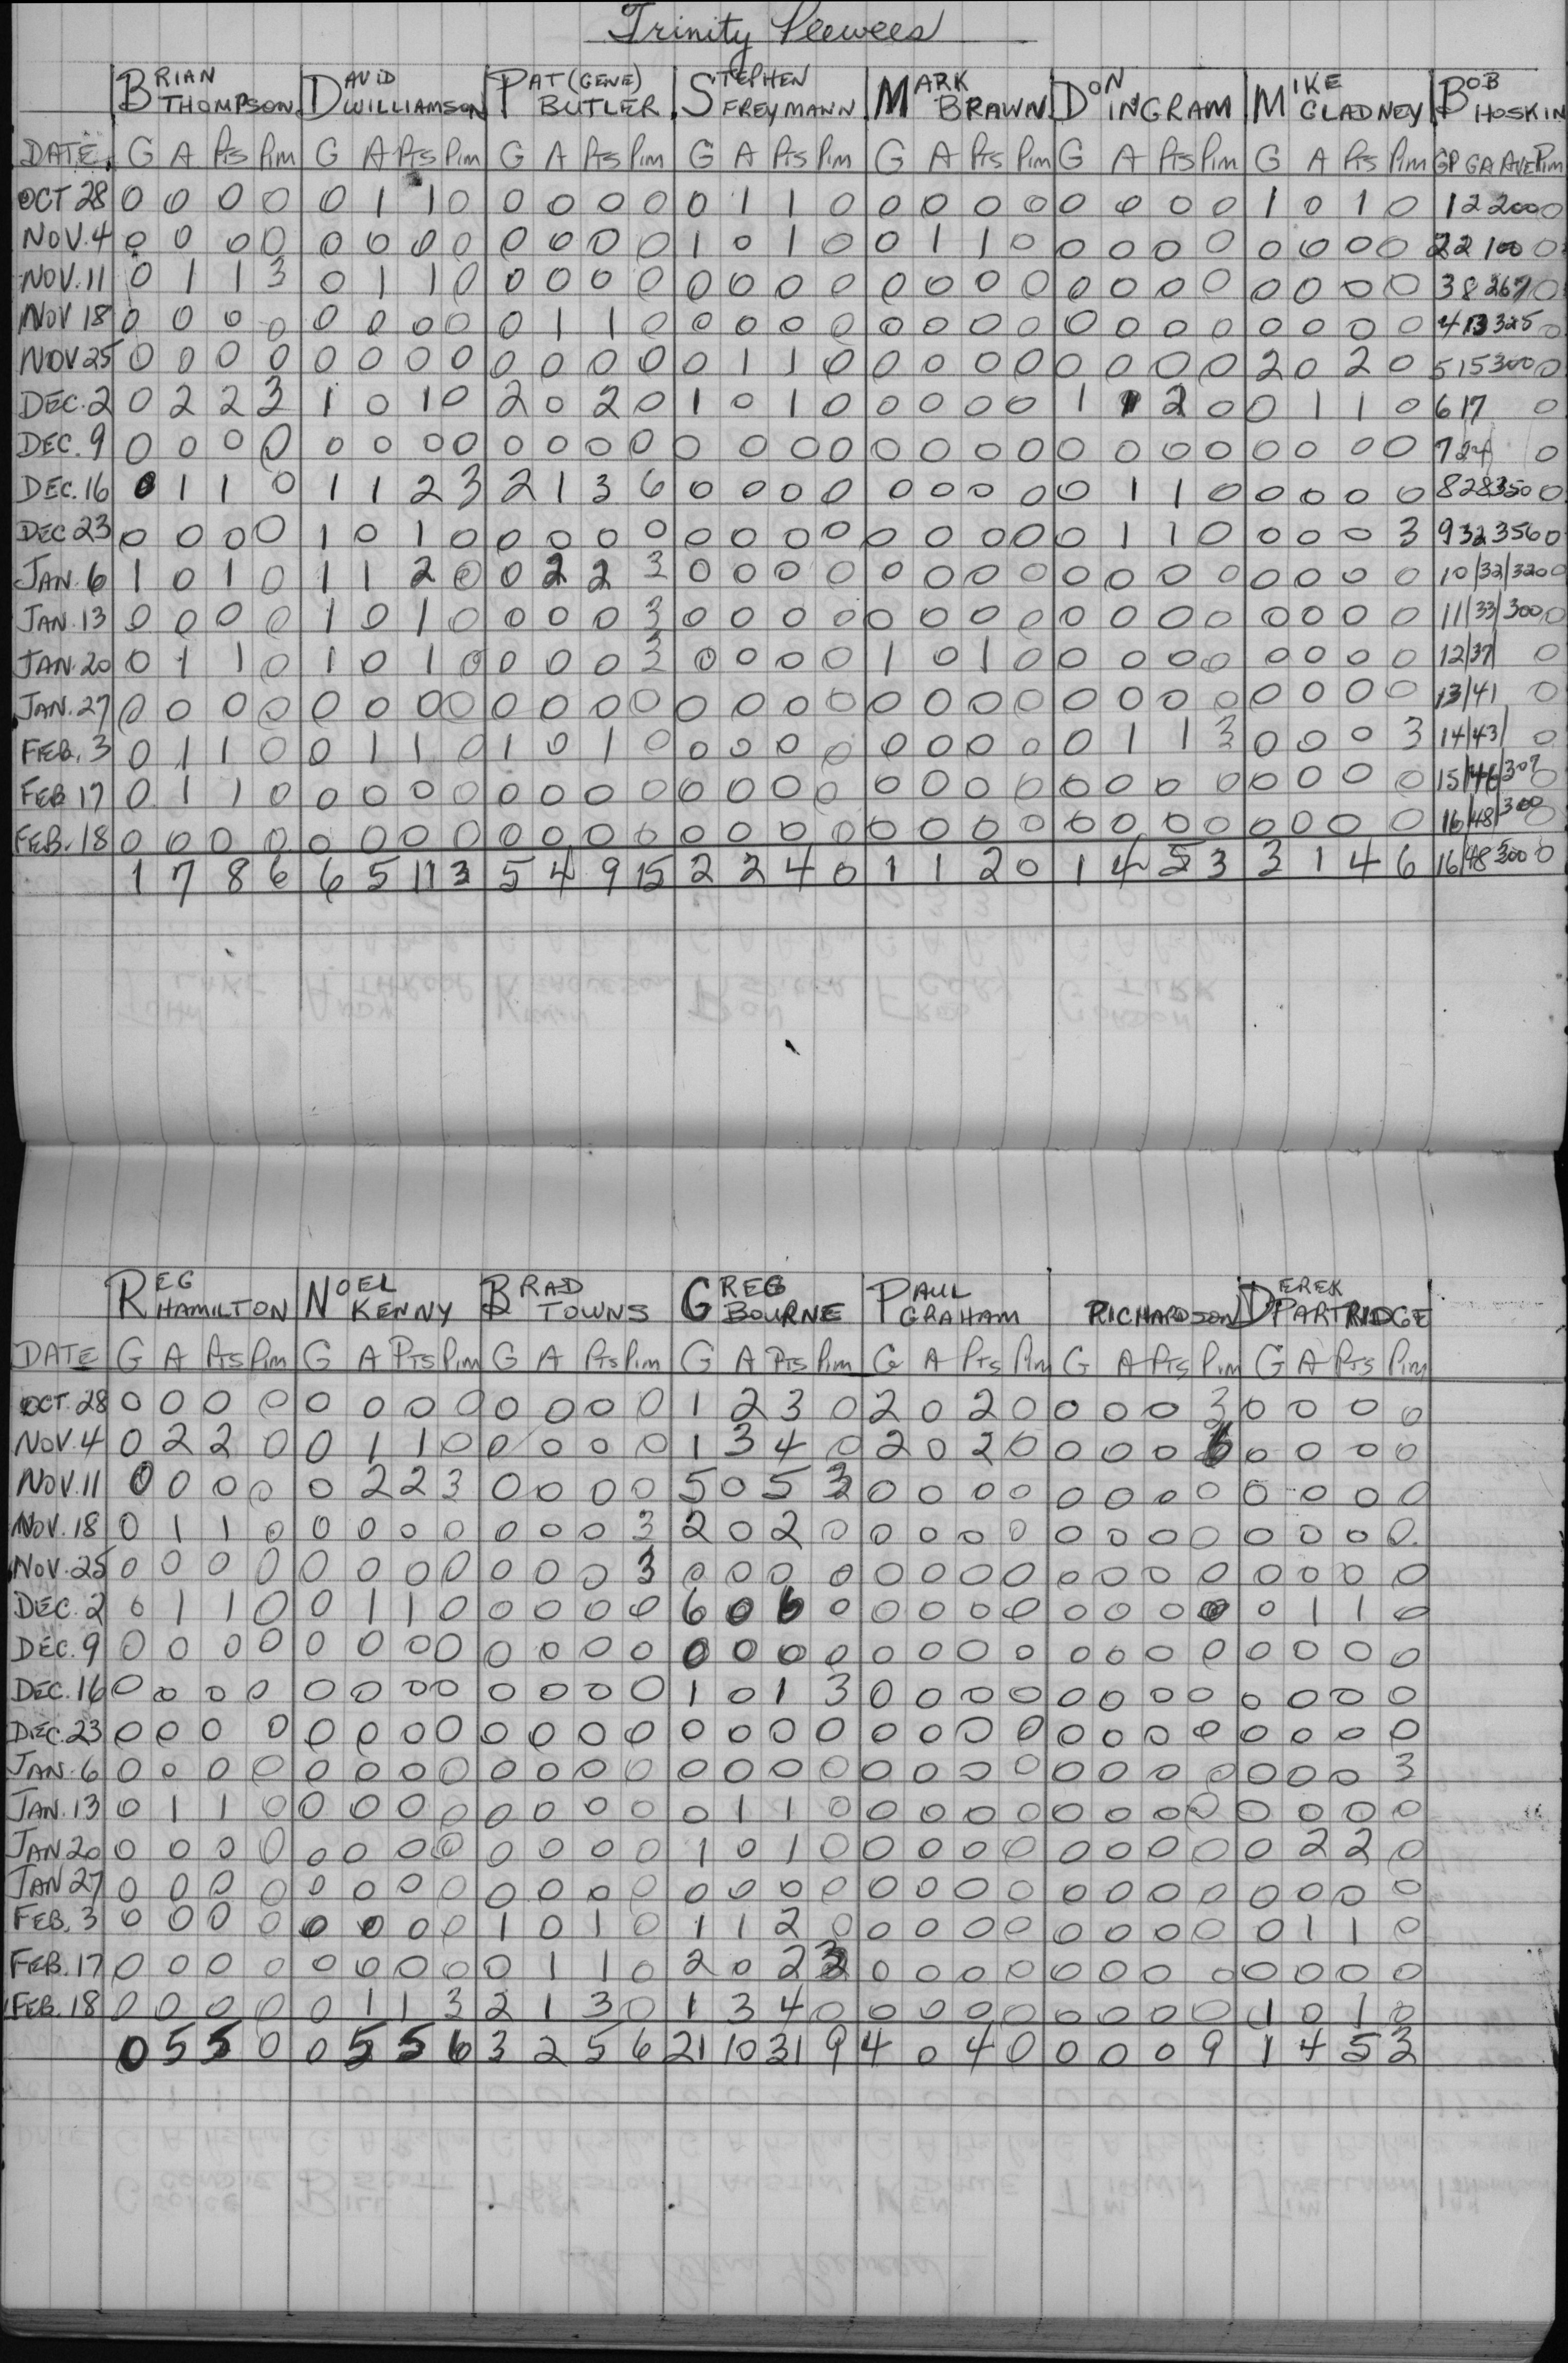 Trinity Peewees
BRIAN THOMPSON DAVID WILLIAMSON PAT (GENE) BUTLER STEPHEN FREYMANN MARK BRAWN DON INGRAM MIKE GLADNEY BOB HOSKIN
DATE G A Pts Pim G A Pts Pim G A Pts Pim G A Pts Pim G A Pts Pim G A Pts Pim G A Pts Pim GP GA AVE Pim
OCT 28 0 0 0 0 0 1 1 0 0 0 0 0 0 1 1 0 0 0 0 0 0 0 0 0 1 0 1 0 1 2 200 0
NOV. 4 0 0 0 0 0 0 0 0 0 0 0 0 1 0 1 0 0 1 1 0 0 0 0 0 0 0 0 0 2 2 100 0
NOV. 11 0 1 1 3 0 1 1 0 0 0 0 0 0 0 0 0 0 0 0 0 0 0 0 0 0 0 0 0 3 8 267 0
NOV 18 0 0 0 0 0 0 0 0 0 1 1 0 0 0 0 0 0 0 0 0 0 0 0 0 0 0 0 0 4 13 325 0
NOV 25 0 0 0 0 0 0 0 0 0 0 0 0 0 1 1 0 0 0 0 0 0 0 0 0 2 0 2 0 5 15 300 0
DEC. 2 0 2 2 3 1 0 1 0 2 0 2 0 1 0 1 0 0 0 0 0 1 1 2 0 0 1 1 0 6 17 0
DEC. 9 0 0 0 0 0 0 0 0 0 0 0 0 0 0 0 0 0 0 0 0 0 0 0 0 0 0 0 0 7 24 0
DEC. 16 0 1 1 0 1 1 2 3 2 1 3 6 0 0 0 0 0 0 0 0 0 1 1 0 0 0 0 0 8 28 350 0
DEC 23 0 0 0 0 1 0 1 0 0 0 0 0 0 0 0 0 0 0 0 0 0 1 1 0 0 0 0 3 9 32 356 0
JAN. 6 1 0 1 0 1 1 2 0 0 2 2 3 0 0 0 0 0 0 0 0 0 0 0 0 0 0 0 0 10/32/320 0
JAN. 13 0 0 0 0 1 0 1 0 0 0 0 3 0 0 0 0 0 0 0 0 0 0 0 0 0 0 0 0 11/33/300 0
JAN. 20 0 1 1 0 1 0 1 0 0 0 0 3 0 0 0 0 1 0 1 0 0 0 0 0 0 0 0 0 12/37/ 0
JAN. 27 0 0 0 0 0 0 0 0 0 0 0 0 0 0 0 0 0 0 0 0 0 0 0 0 0 0 0 0 13/41 0
FEB. 3 0 1 1 0 0 1 1 0 1 0 1 0 0 0 0 0 0 0 0 0 0 1 1 3 0 0 0 3 14/43/ 0
FEB 17 0 1 1 0 0 0 0 0 0 0 0 0 0 0 0 0 0 0 0 0 0 0 0 0 0 0 0 0 15/46/307 0
FEB. 18 0 0 0 0 0 0 0 0 0 0 0 0 0 0 0 0 0 0 0 0 0 0 0 0 0 0 0 0 16/48/300 0
1 7 8 6 6 5 11 3 5 4 9 15 2 2 4 0 1 1 2 0 1 4 5 3 3 1 4 6 16/48 300 0
REG HAMILTON NOEL KENNY BRAD TOWNS GREG BOURNE PAUL GRAHAM RICHARDSON DEREK PARTRIDGE
DATE G A Pts Pim G A Pts Pim G A Pts Pim G A Pts Pim G A Pts Pim G A Pts Pim G A Pts Pim
OCT. 28 0 0 0 0 0 0 0 0 0 0 0 0 1 2 3 0 2 0 2 0 0 0 0 3 0 0 0 0
NOV. 4 0 2 2 0 0 1 1 0 0 0 0 0 1 3 4 0 2 0 2 0 0 0 0 6 0 0 0 0
NOV. 11 0 0 0 0 0 2 2 3 0 0 0 0 5 0 5 3 0 0 0 0 0 0 0 0 0 0 0 0
NOV. 18 0 1 1 0 0 0 0 0 0 0 0 3 2 0 2 0 0 0 0 0 0 0 0 0 0 0 0 0
NOV. 25 0 0 0 0 0 0 0 0 0 0 0 3 0 0 0 0 0 0 0 0 0 0 0 0 0 0 0 0
DEC. 2 0 1 1 0 0 1 1 0 0 0 0 0 6 0 6 0 0 0 0 0 0 0 0 0 0 1 1 0
DEC. 9 0 0 0 0 0 0 0 0 0 0 0 0 0 0 0 0 0 0 0 0 0 0 0 0 0 0 0 0
DEC. 16 0 0 0 0 0 0 0 0 0 0 0 0 1 0 1 3 0 0 0 0 0 0 0 0 0 0 0 0
DEC. 23 0 0 0 0 0 0 0 0 0 0 0 0 0 0 0 0 0 0 0 0 0 0 0 0 0 0 0 0
JAN. 6 0 0 0 0 0 0 0 0 0 0 0 0 0 0 0 0 0 0 0 0 0 0 0 0 0 0 0 3
JAN. 13 0 1 1 0 0 0 0 0 0 0 0 0 0 1 1 0 0 0 0 0 0 0 0 0 0 0 0 0
JAN 20 0 0 0 0 0 0 0 0 0 0 0 0 1 0 1 0 0 0 0 0 0 0 0 0 0 2 2 0
JAN 27 0 0 0 0 0 0 0 0 0 0 0 0 0 0 0 0 0 0 0 0 0 0 0 0 0 0 0 0
FEB. 3 0 0 0 0 0 0 0 0 1 0 1 0 1 1 2 0 0 0 0 0 0 0 0 0 0 1 1 0
FEB. 17 0 0 0 0 0 0 0 0 0 1 1 0 2 0 2 3 0 0 0 0 0 0 0 0 0 0 0 0
FEB. 18 0 0 0 0 0 1 1 3 2 1 3 0 1 3 4 0 0 0 0 0 0 0 0 0 1 0 1 0
0 5 5 0 0 5 5 6 3 2 5 6 21 10 31 9 4 0 4 0 0 0 0 9 1 4 5 3